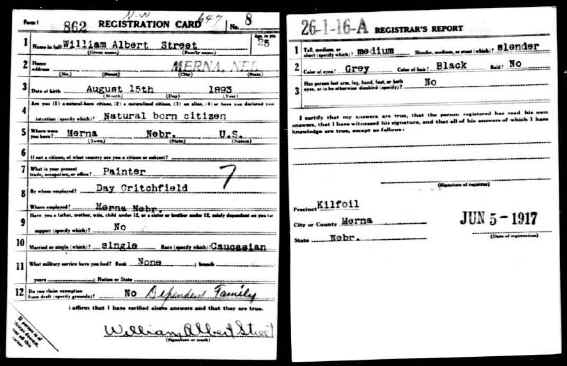 Form 1
862 REGISTRATION CARD 647 No. 8
1 Name in full William Albert Street
(Given name) (Family name)
Age, in yrs.
2 Home address MERNA, NEB
(No.) (Street) (City) (State)
3 Date of birth August 15th 1893
(Month) (Day) (Year)
4 Are you (1) a natural-born citizen, (2) a naturalized citizen, (3) an alien, (4) or have you declared your
intention (specify which)? Natural born citizen
5 Where were you born? Merna Nebr. U.S.
(Town) (State) (Nation)
6 If not a citizen, of what country are you a citizen or subject?
7 What is your present trade, occupation, or office? Painter 7
8 By whom employed? Day Critchfield
Where employed? Merna Nebr.
9 Have you a father, mother, wife, child under 12, or a sister or brother under 12, solely dependent on you for
support (specify which)? No
10 Married or single (which)? single Race (specify which)? Caucasian
11 What military service have you had? Rank None ; branch
years ; Nation or State
12 Do you claim exemption from draft (specify grounds)? No Dependent Family
I affirm that I have verified above answers and that they are true.
William Albert Street
(Signature or mark)
26-1-16-A REGISTRAR'S REPORT
1 Tall, medium, or short (specify which)? medium Slender, medium, or stout (which)? slender
2 Color of eyes? Grey Color of hair? Black Bald? No
3 Has person lost arm, leg, hand, foot, or both eyes, or is he otherwise disabled (specify)? No
I certify that my answers are true, that the person registered has read his own
answers, that I have witnessed his signature, and that all of his answers of which I have
knowledge are true, except as follows:
(Signature of registrar)
Precinct Kilfoil
City or County Merna
State Nebr.
JUN 5 - 1917
(Date of registration)